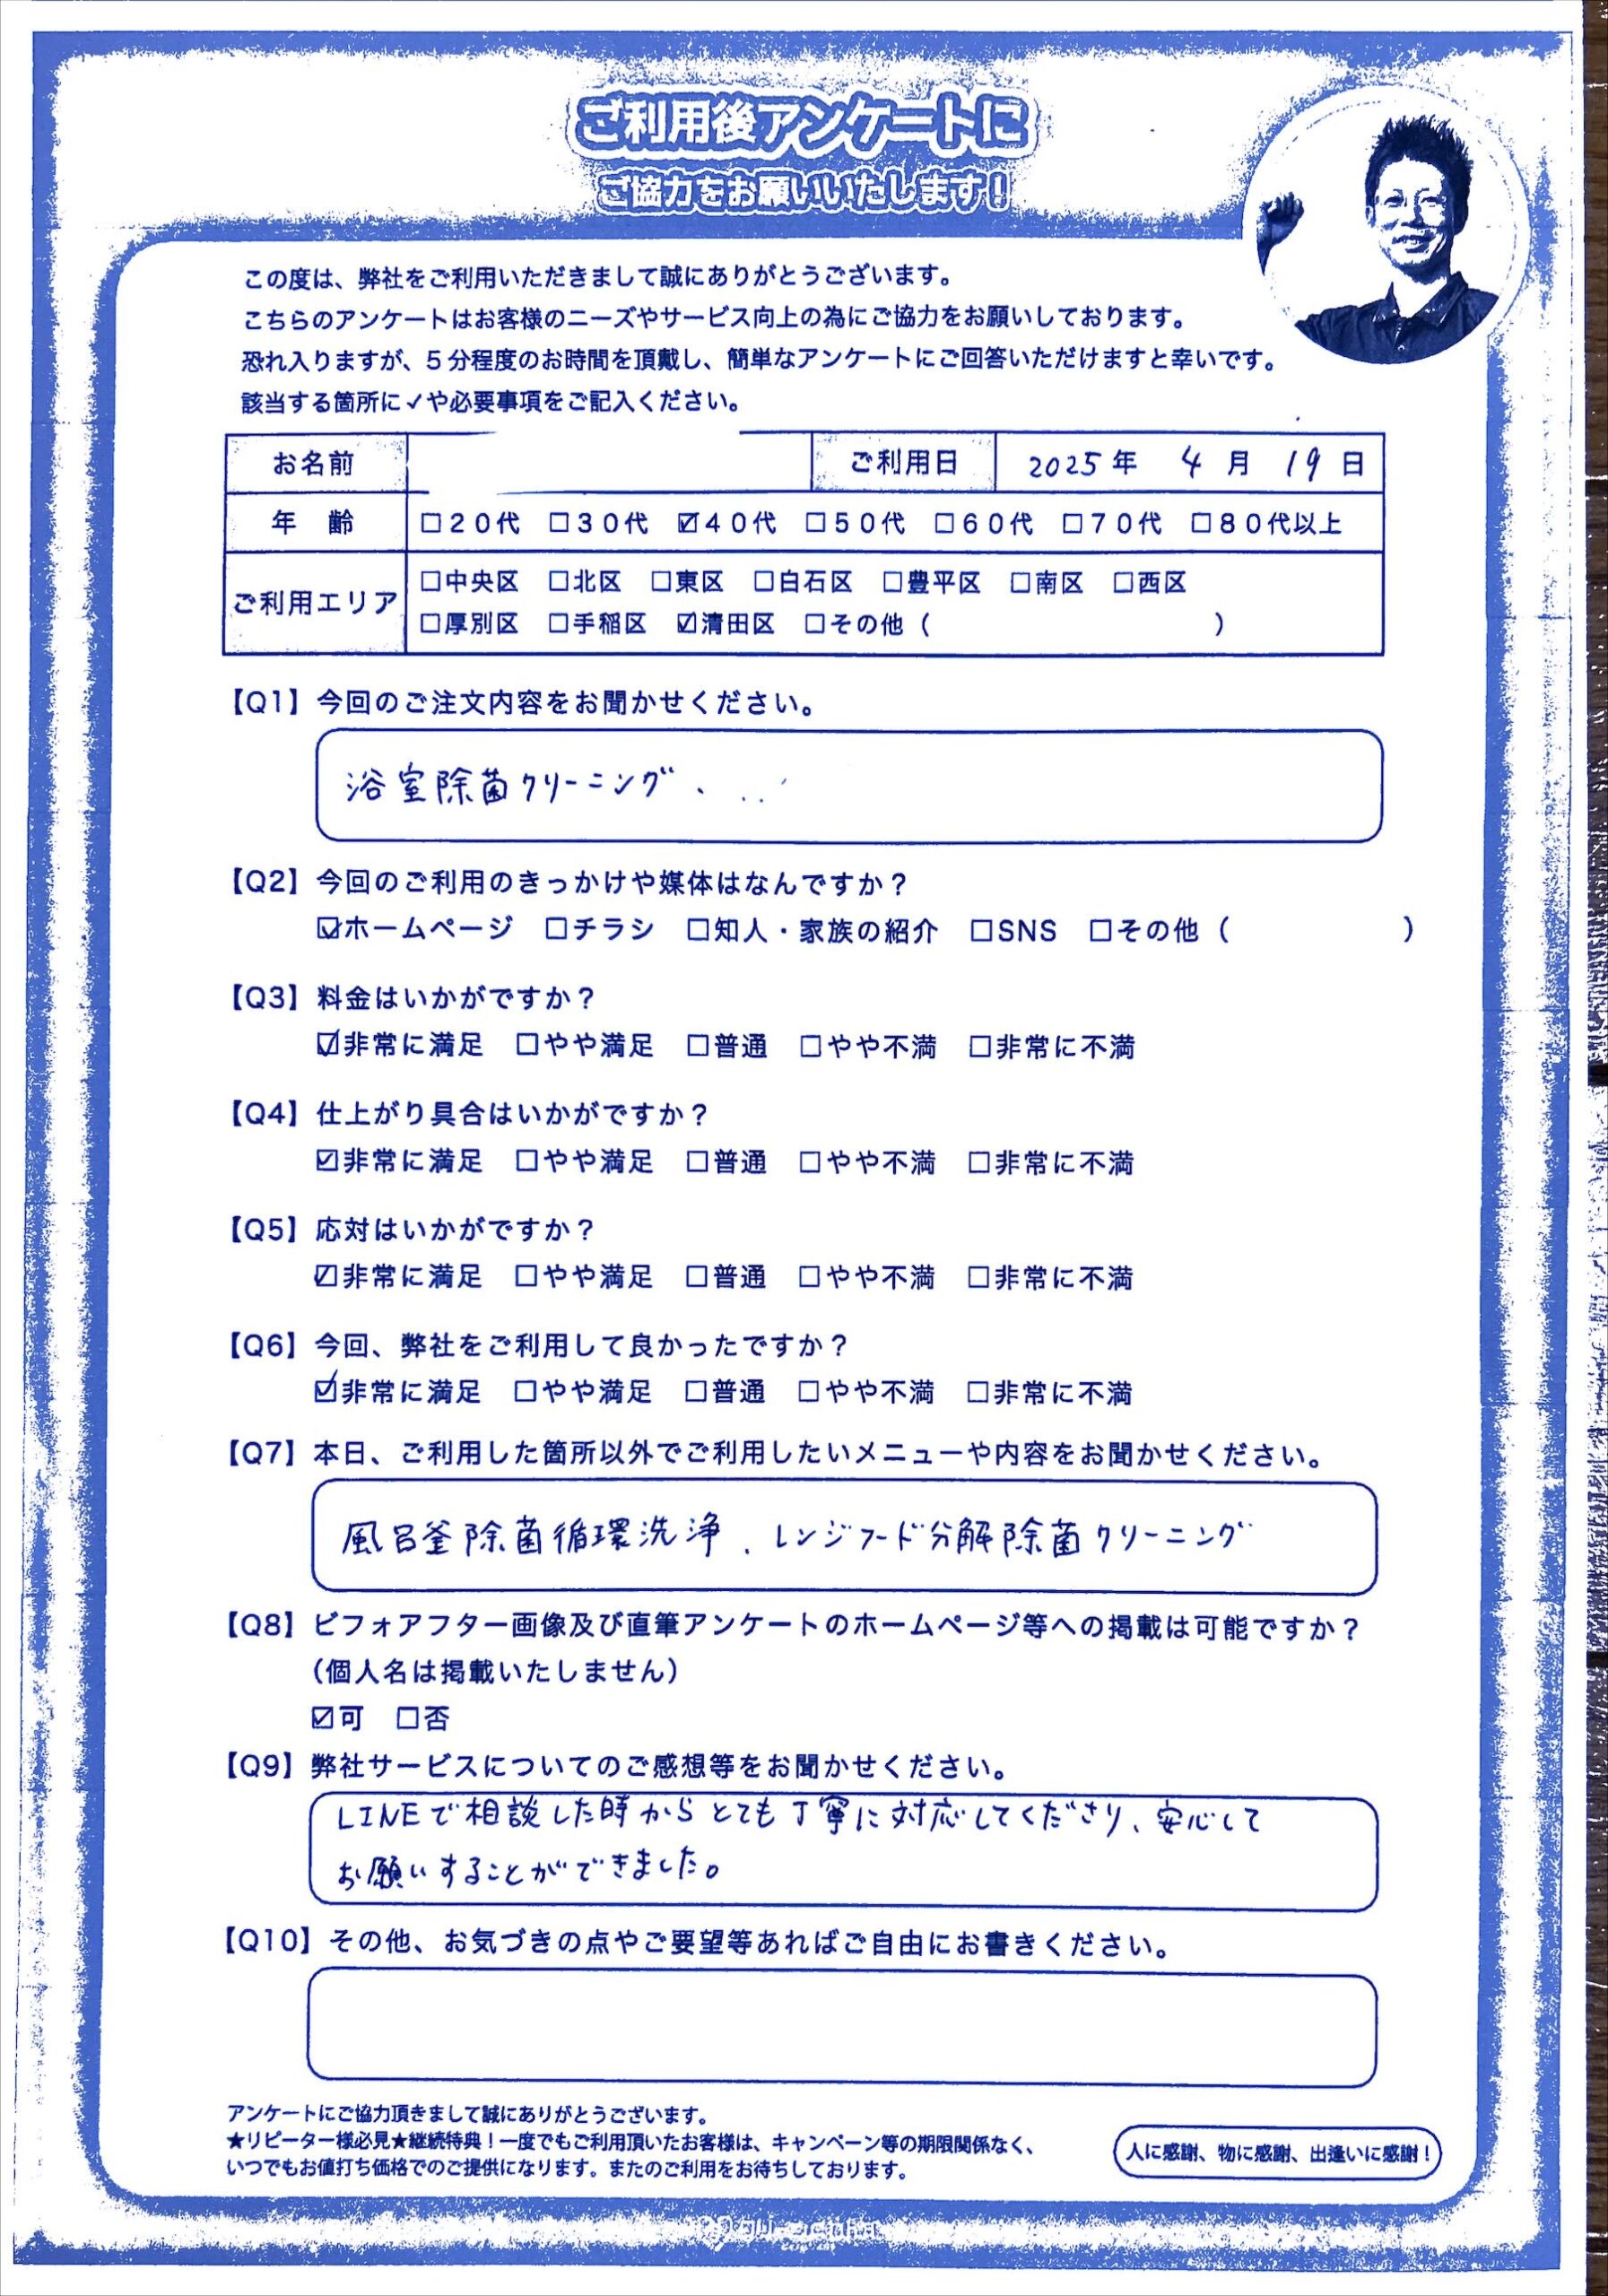 ご利用後アンケートに
ご協力をお願いいたします！
この度は、弊社をご利用いただきまして誠にありがとうございます。
こちらのアンケートはお客様のニーズやサービス向上の為にご協力をお願いしております。
恐れ入りますが、５分程度のお時間を頂戴し、簡単なアンケートにご回答いただけますと幸いです。
該当する箇所に✓や必要事項をご記入ください。
お名前 ご利用日 2025年 4月 19日
年 齢 □２０代 □３０代 ☑４０代 □５０代 □６０代 □７０代 □８０代以上
ご利用エリア □中央区 □北区 □東区 □白石区 □豊平区 □南区 □西区
□厚別区 □手稲区 ☑清田区 □その他（ ）
【Q1】今回のご注文内容をお聞かせください。
浴室除菌クリーニング、
【Q2】今回のご利用のきっかけや媒体はなんですか？
☑ホームページ □チラシ □知人・家族の紹介 □SNS □その他（ ）
【Q3】料金はいかがですか？
☑非常に満足 □やや満足 □普通 □やや不満 □非常に不満
【Q4】仕上がり具合はいかがですか？
☑非常に満足 □やや満足 □普通 □やや不満 □非常に不満
【Q5】応対はいかがですか？
☑非常に満足 □やや満足 □普通 □やや不満 □非常に不満
【Q6】今回、弊社をご利用して良かったですか？
☑非常に満足 □やや満足 □普通 □やや不満 □非常に不満
【Q7】本日、ご利用した箇所以外でご利用したいメニューや内容をお聞かせください。
風呂釜除菌循環洗浄、レンジフード分解除菌クリーニング
【Q8】ビフォアフター画像及び直筆アンケートのホームページ等への掲載は可能ですか？
（個人名は掲載いたしません）
☑可 □否
【Q9】弊社サービスについてのご感想等をお聞かせください。
LINEで相談した時からとても丁寧に対応してくださり、安心して
お願いすることができました。
【Q10】その他、お気づきの点やご要望等あればご自由にお書きください。
アンケートにご協力頂きまして誠にありがとうございます。
★リピーター様必見★継続特典！一度でもご利用頂いたお客様は、キャンペーン等の期限関係なく、
いつでもお値打ち価格でのご提供になります。またのご利用をお待ちしております。
人に感謝、物に感謝、出逢いに感謝！